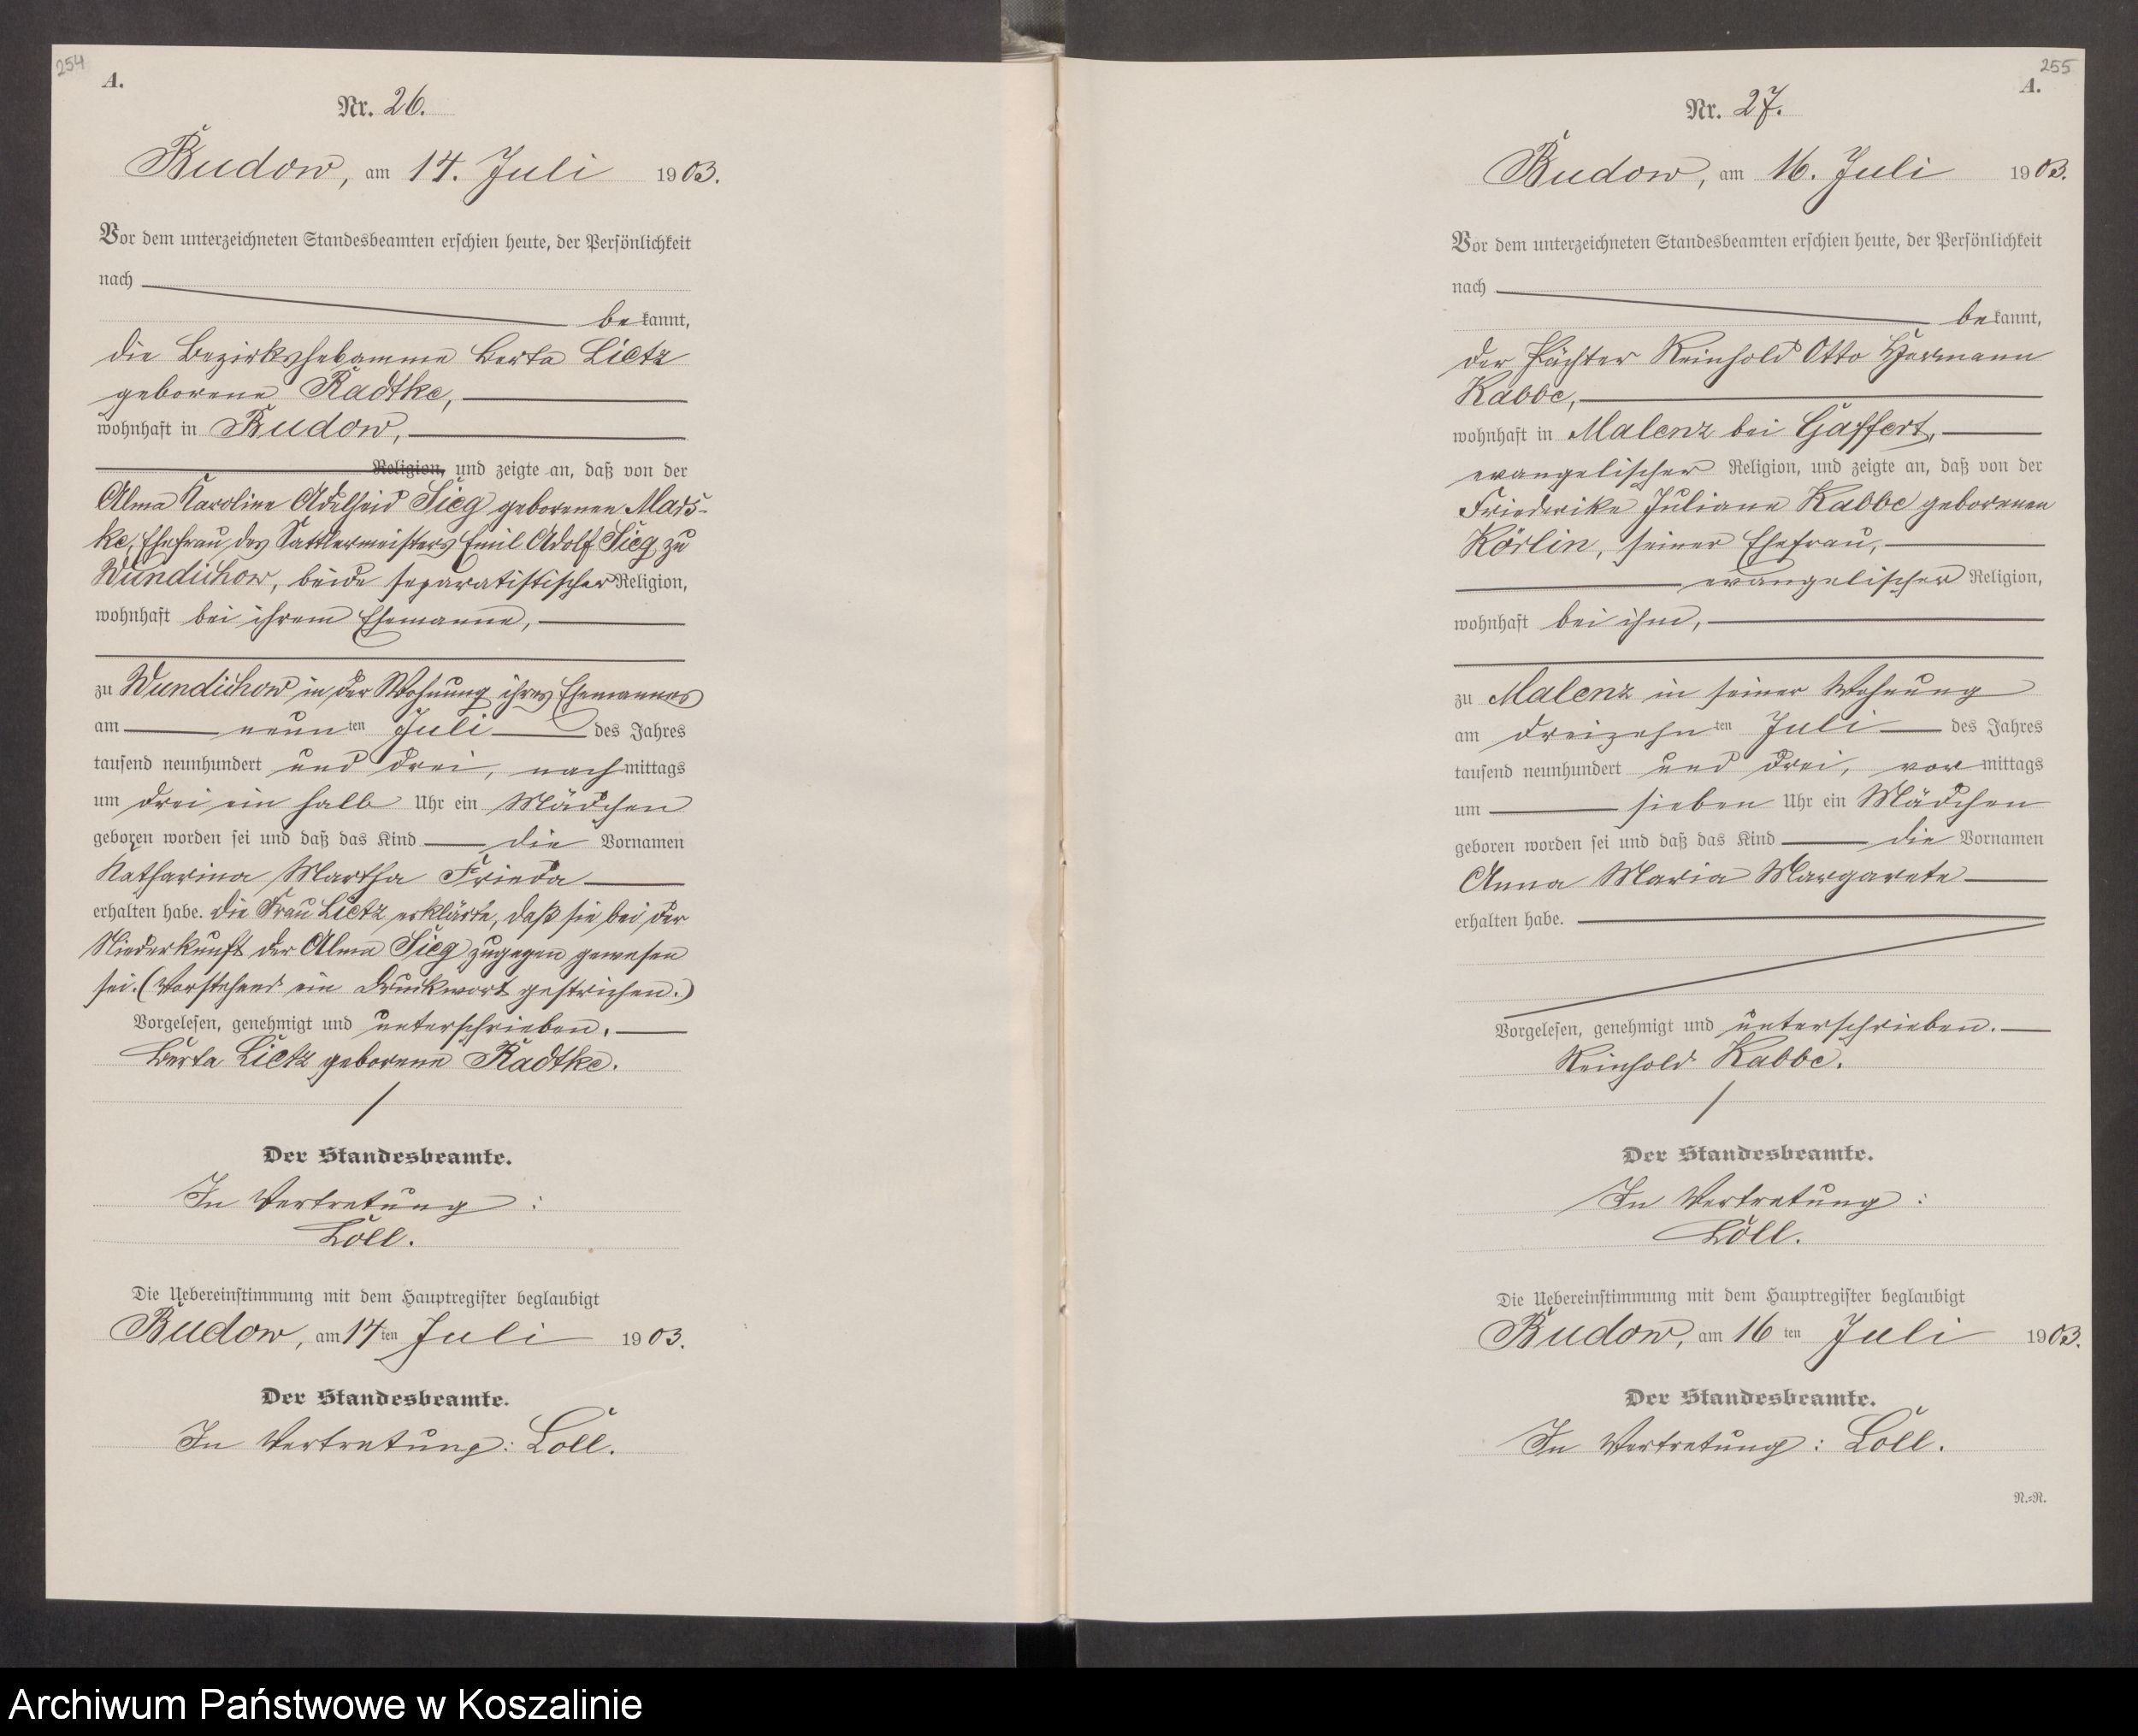 254
A.
Nr. 26.
Budow, am 14. Juli 1903.
Vor dem unterzeichneten Standesbeamten erschien heute, der Persönlichkeit
nach
bekannt,
die Bezirkshebamme Berta Lietz
geborene Radtke,
wohnhaft in Budow,
Religion, und zeigte an, daß von der
Alma Karoline Adelheid Sieg geborenen Mars-
ke, Ehefrau des Sattlermeisters Emil Adolf Sieg zu
Wundichow, beide separatistischer Religion,
wohnhaft bei ihrem Ehemanne,
zu Wundichow in der Wohnung ihres Ehemannes
am neunten Juli des Jahres
tausend neunhundert und drei, nachmittags
um drei ein halb Uhr ein Mädchen
geboren worden sei und daß das Kind die Vornamen
Katharina Martha Frieda
erhalten habe. Die Frau Lietz erklärte, daß sie bei der
Niederkunft der Alma Sieg zugegen gewesen
sei. (Vorstehend ein Druckwort gestrichen.)
Vorgelesen, genehmigt und unterschrieben.
Berta Lietz geborene Radtke.
Der Standesbeamte.
In Vertretung:
Löll.
Die Uebereinstimmung mit dem Hauptregister beglaubigt
Budow, am 14ten Juli 1903.
Der Standesbeamte.
In Vertretung: Löll.
255
A.
Nr. 27.
Budow, am 16. Juli 1903.
Vor dem unterzeichneten Standesbeamten erschien heute, der Persönlichkeit
nach
bekannt,
der Pächter Reinhold Otto Hermann
Kabbe,
wohnhaft in Malenz bei Gaffert,
evangelischer Religion, und zeigte an, daß von der
Friederike Juliane Kabbe geborenen
Körlin, seiner Ehefrau,
evangelischer Religion,
wohnhaft bei ihm,
zu Malenz in seiner Wohnung
am dreizehnten Juli des Jahres
tausend neunhundert und drei, vormittags
um sieben Uhr ein Mädchen
geboren worden sei und daß das Kind die Vornamen
Anna Maria Margarete
erhalten habe.
Vorgelesen, genehmigt und unterschrieben.
Reinhold Kabbe.
Der Standesbeamte.
In Vertretung:
Löll.
Die Uebereinstimmung mit dem Hauptregister beglaubigt
Budow, am 16ten Juli 1903.
Der Standesbeamte.
In Vertretung: Löll.
N.=N.
Archiwum Państwowe w Koszalinie